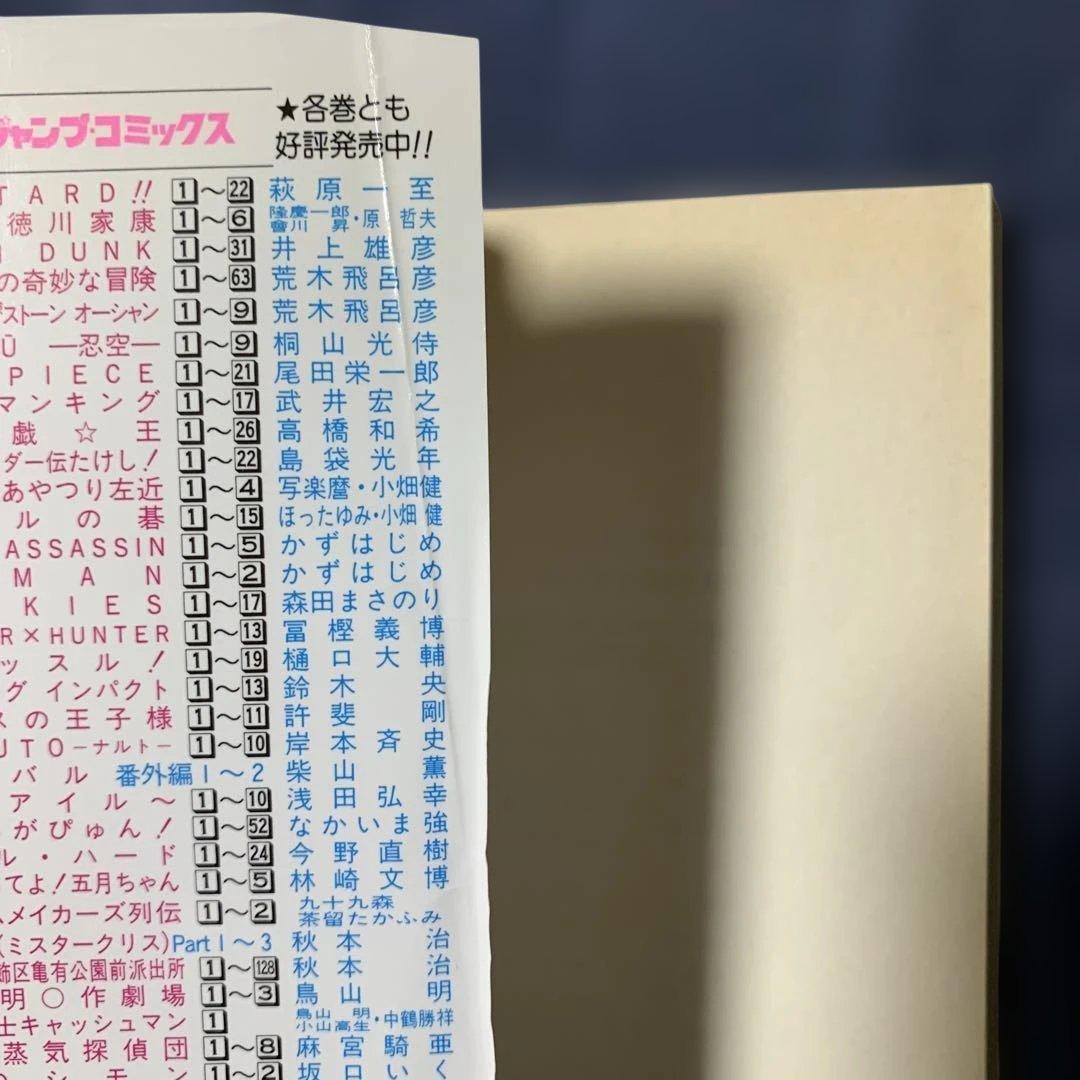 ジャンプ・コミックス ★各巻とも
好評発売中!!
TARD!! 1～22 萩原一至
徳川家康 1～6 隆慶一郎・原 哲夫
會川 昇
DUNK 1～31 井上雄彦
の奇妙な冒険 1～63 荒木飛呂彦
ストーン オーシャン 1～9 荒木飛呂彦
Ū ―忍空― 1～9 桐山光侍
PIECE 1～21 尾田栄一郎
マンキング 1～17 武井宏之
戯☆王 1～26 高橋和希
ダー伝たけし! 1～22 島袋光年
あやつり左近 1～4 写楽麿・小畑健
ルの碁 1～15 ほったゆみ・小畑 健
ASSASSIN 1～5 かずはじめ
MAN 1～2 かずはじめ
KIES 1～17 森田まさのり
R×HUNTER 1～13 冨樫義博
ッスル! 1～19 樋口大輔
グ インパクト 1～13 鈴木 央
スの王子様 1～11 許斐 剛
UTO―ナルト― 1～10 岸本斉史
バル 番外編1～2 柴山 薫
アイル～ 1～10 浅田弘幸
がぴゅん! 1～52 なかいま強
ル・ハード 1～24 今野直樹
てよ!五月ちゃん 1～5 林崎文博
ムメイカーズ列伝 1～2 九十九森
茶留たかふみ
(ミスタークリス)Part1～3 秋本 治
飾区亀有公園前派出所 1～128 秋本 治
明○作劇場 1～3 鳥山 明
士キャッシュマン 1 鳥山 明
小山高生・中鶴勝祥
蒸気探偵団 1～8 麻宮騎亜
シモン 1～2 坂口いく